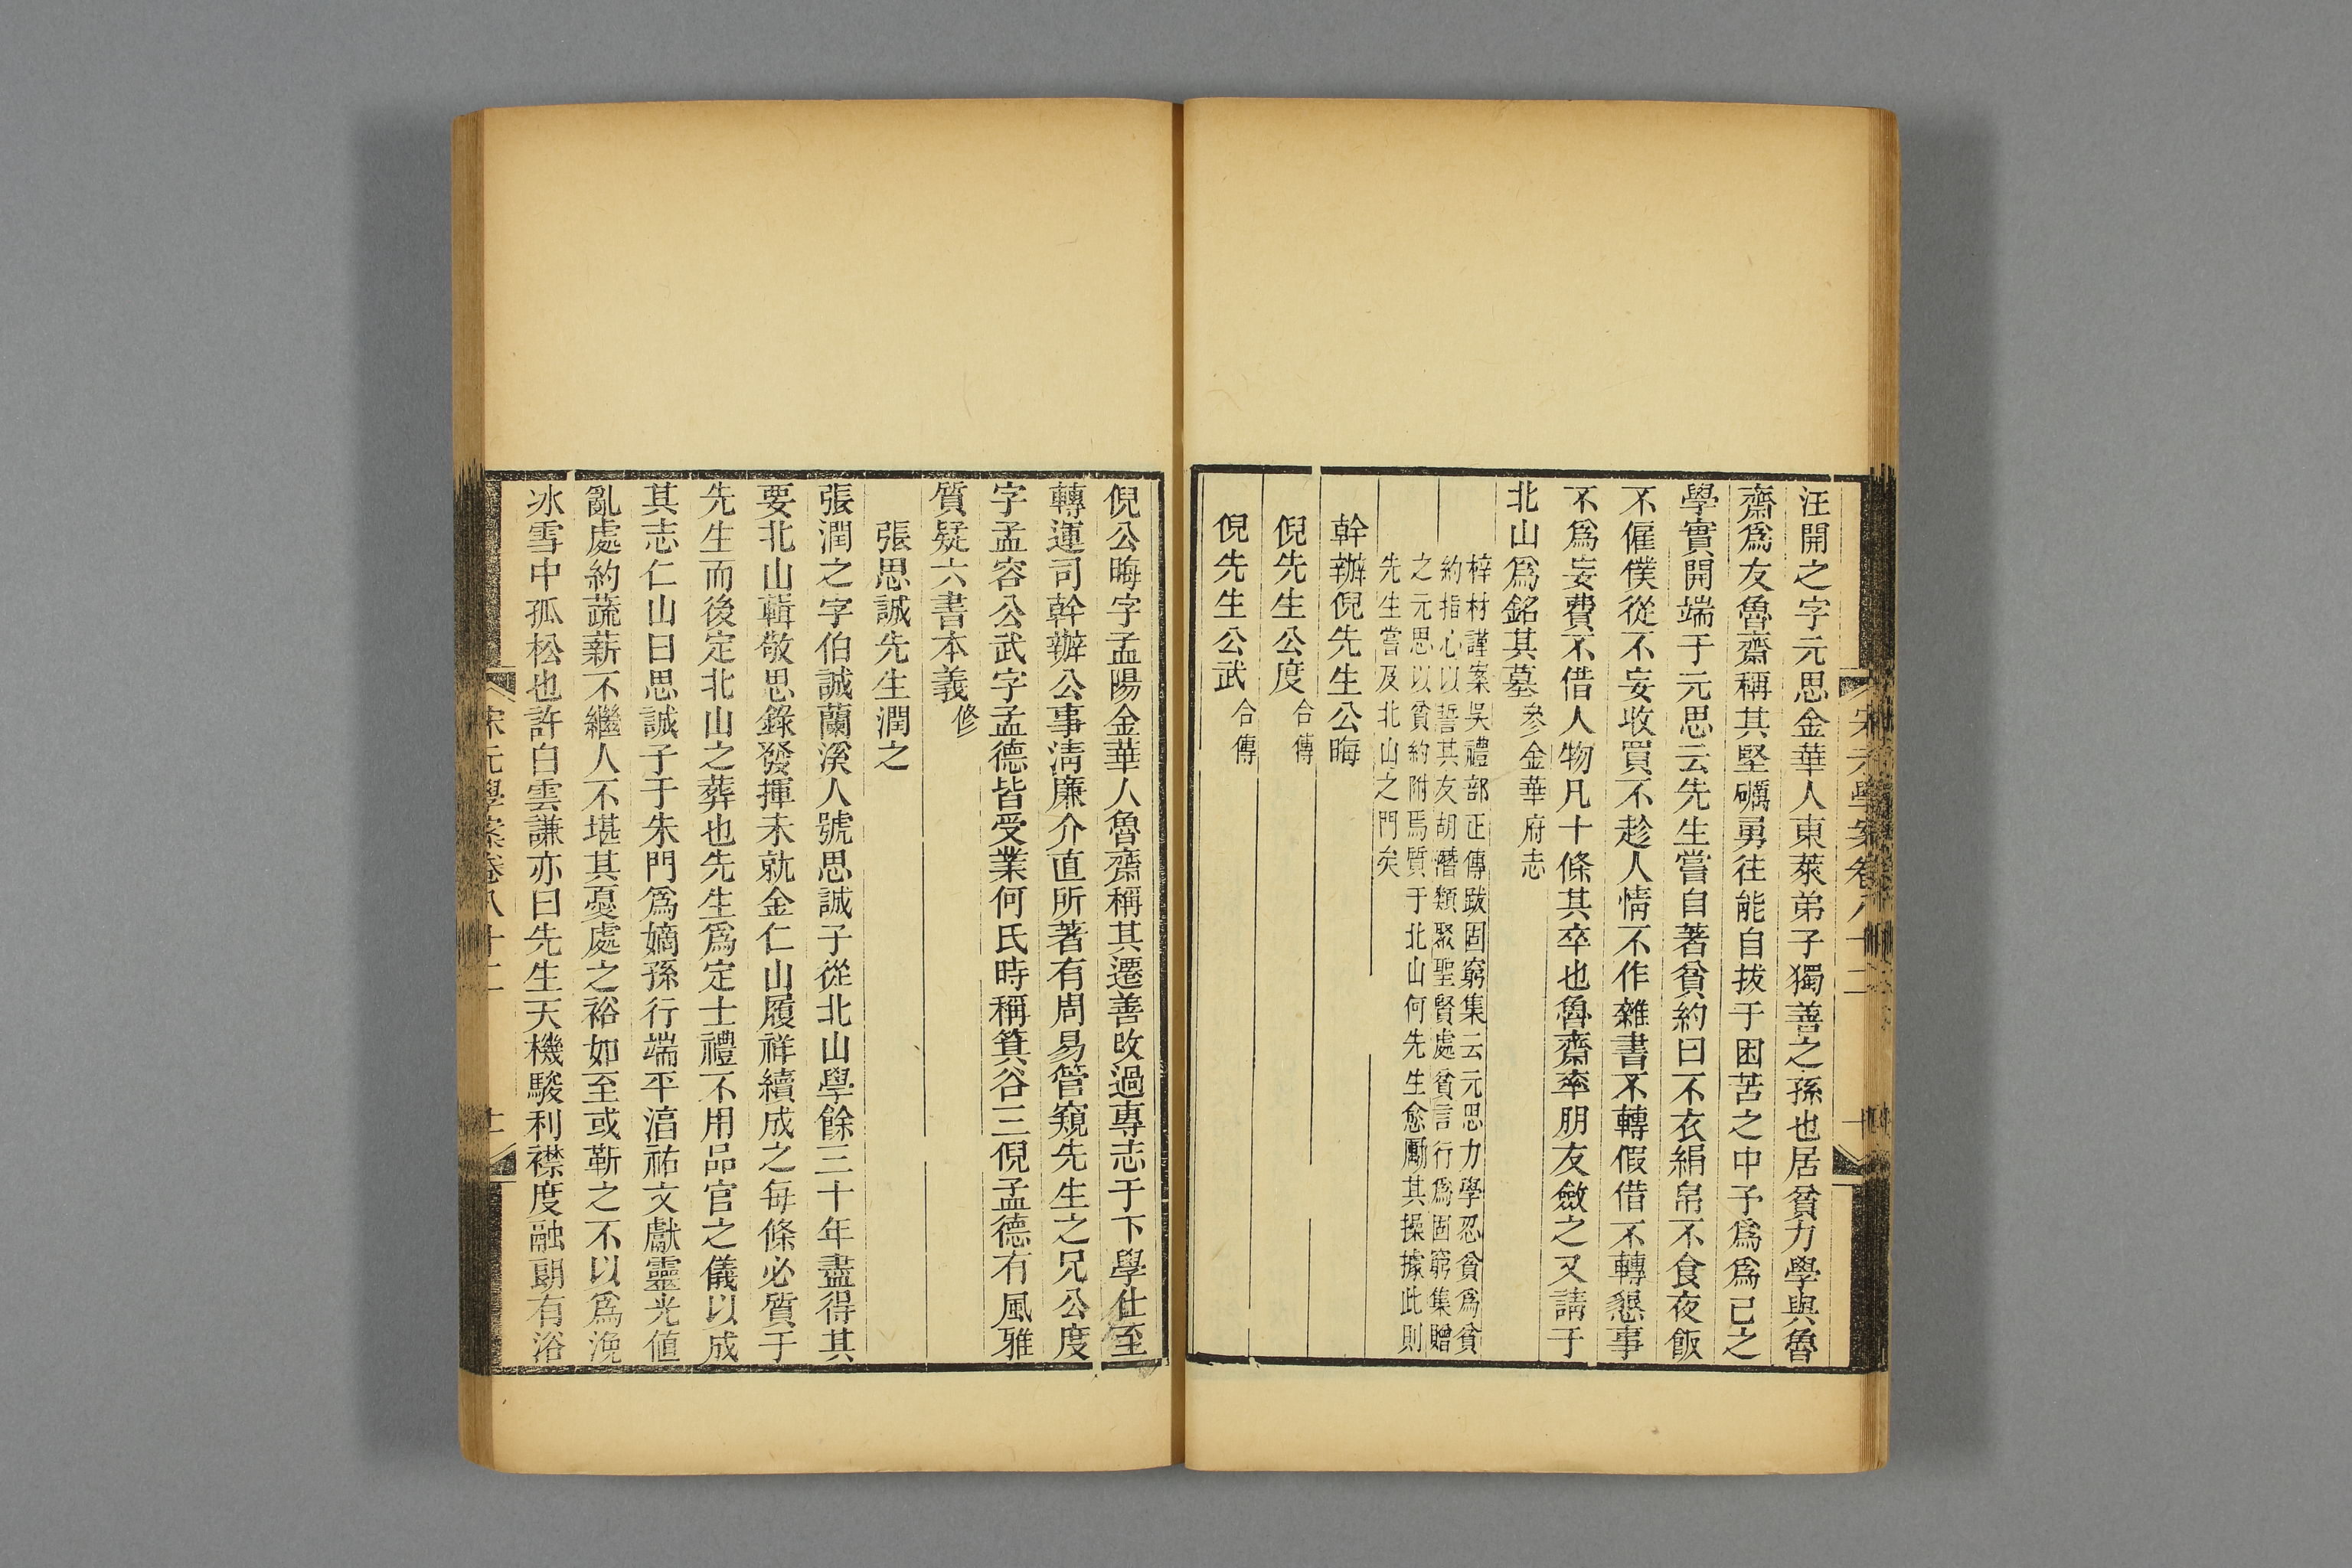 汪開之字元思金華人東萊弟子獨善之孫也居貧力學與魯
齋爲友魯齋稱其堅礪勇往能自拔于困苦之中予爲爲己之
學實開端于元思云先生嘗自著貧約曰不衣絹帛不食夜飯
不僱僕從不妄收買不趁人情不作雜書不轉假借不轉懇事
不爲妄費不借人物凡十條其卒也魯齋率朋友斂之又請于
北山爲銘其墓參金華府志
梓材謹案吳禮部正傳跋固窮集云元思力學忍貧爲貧
約指心以誓其友胡潛類聚聖賢處貧言行爲固窮集贈
之元思以貧約附焉質于北山何先生愈勵其操據此則
先生嘗及北山之門矣
幹辦倪先生公晦
倪先生公度合傳
倪先生公武合傳
倪公晦字孟陽金華人魯齋稱其遷善改過專志于下學仕至
轉運司幹辦公事清廉介直所著有周易管窺先生之兄公度
字孟容公武字孟德皆受業何氏時稱箕谷三倪孟德有風雅
質疑六書本義修
張思誠先生潤之
張潤之字伯誠蘭溪人號思誠子從北山學餘三十年盡得其
要北山輯敬思錄發揮未就金仁山履祥續成之每條必質于
先生而後定北山之葬也先生爲定士禮不用品官之儀以成
其志仁山曰思誠子于朱門爲嫡孫行端平淳祐文獻靈光值
亂處約蔬薪不繼人不堪其憂處之裕如至或靳之不以爲浼
冰雪中孤松也許白雲謙亦曰先生天機駿利襟度融朗有浴
宋元學案卷八十二